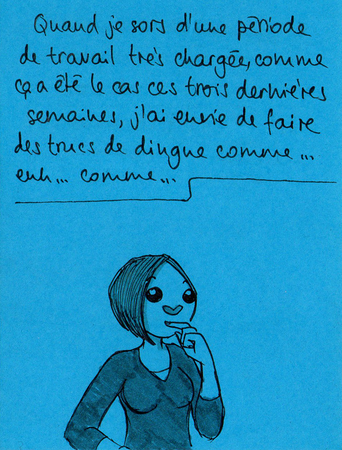 Quand je sors d'une période
de travail très chargée, comme
ça a été le cas ces trois dernières
semaines, j'ai envie de faire
des trucs de dingue comme...
euh... comme...